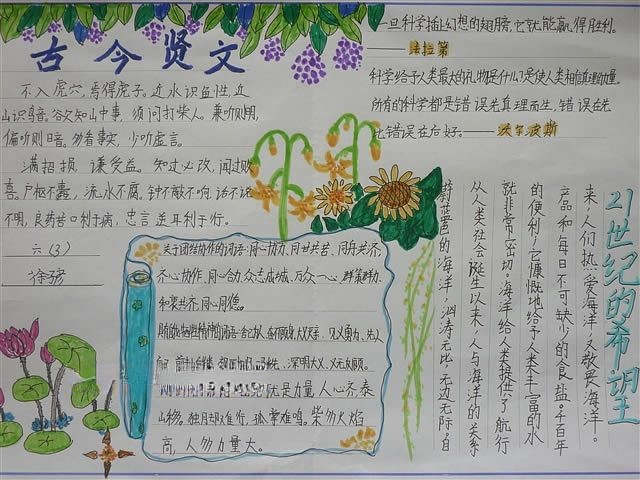 古今贤文
不入虎穴,焉得虎子。近水识鱼性,近
山识鸟音。欲知山中事,须问打柴人。兼听则明,
偏听则暗。多看事实,少听虚言。
满招损,谦受益。知过必改,闻过则
喜。户枢不蠹,流水不腐。钟不敲不响,话不说
不明,良药苦口利于病,忠言逆耳利于行。
六(3)
徐
一旦科学插上幻想的翅膀,它就能赢得胜利。
——法拉第
科学给予人类最大的礼物是什么们是使人类相信真理的力量。
所有的科学都是错误先真理而生,错误在先
比错误在后好。——沃尔波斯
21世纪的希望
蔚蓝色的海洋,汹涛无比,无边无际,自
从人类社会诞生以来,人与海洋的关系
就非常密切。海洋给人类提供了航行
的便利,它慷慨地给予人类丰富的水
产品和每日不可缺少的食盐。千百年
来,人们热爱海洋,又敬畏海洋。
关于团结协作的词语:同心协力、同甘共苦、同舟共济、
齐心协作、同心合力、众志成城、万众一心、群策群力、
和衷共济、同心同德。
舍己为人、奋不顾身、大公无私、见义勇为、先人
深明大义、义无反顾。
就是力量 人心齐,泰
山移。独脚难行,孤掌难鸣。柴多火焰
高,人多力量大。